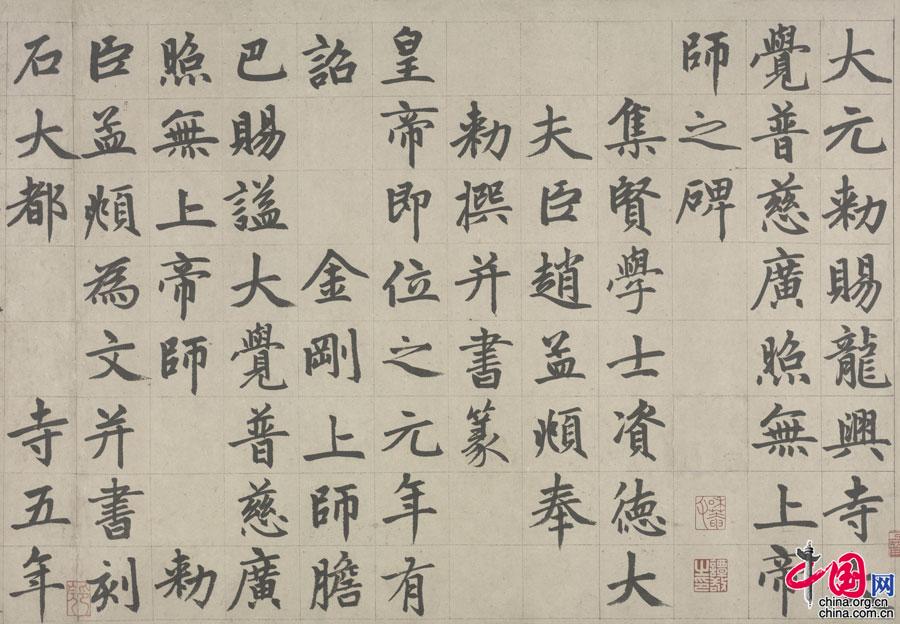 大元敕賜龍興寺
覺普慈廣照無上帝
師之碑
集賢學士資德大
夫臣趙孟頫奉
敕撰并書篆
皇帝即位之元年有
詔金剛上師膽
巴賜謚大覺普慈廣
照無上帝師敕
臣孟頫為文并書刻
石大都寺五年
中国网
china.org.cn
china.com.cn